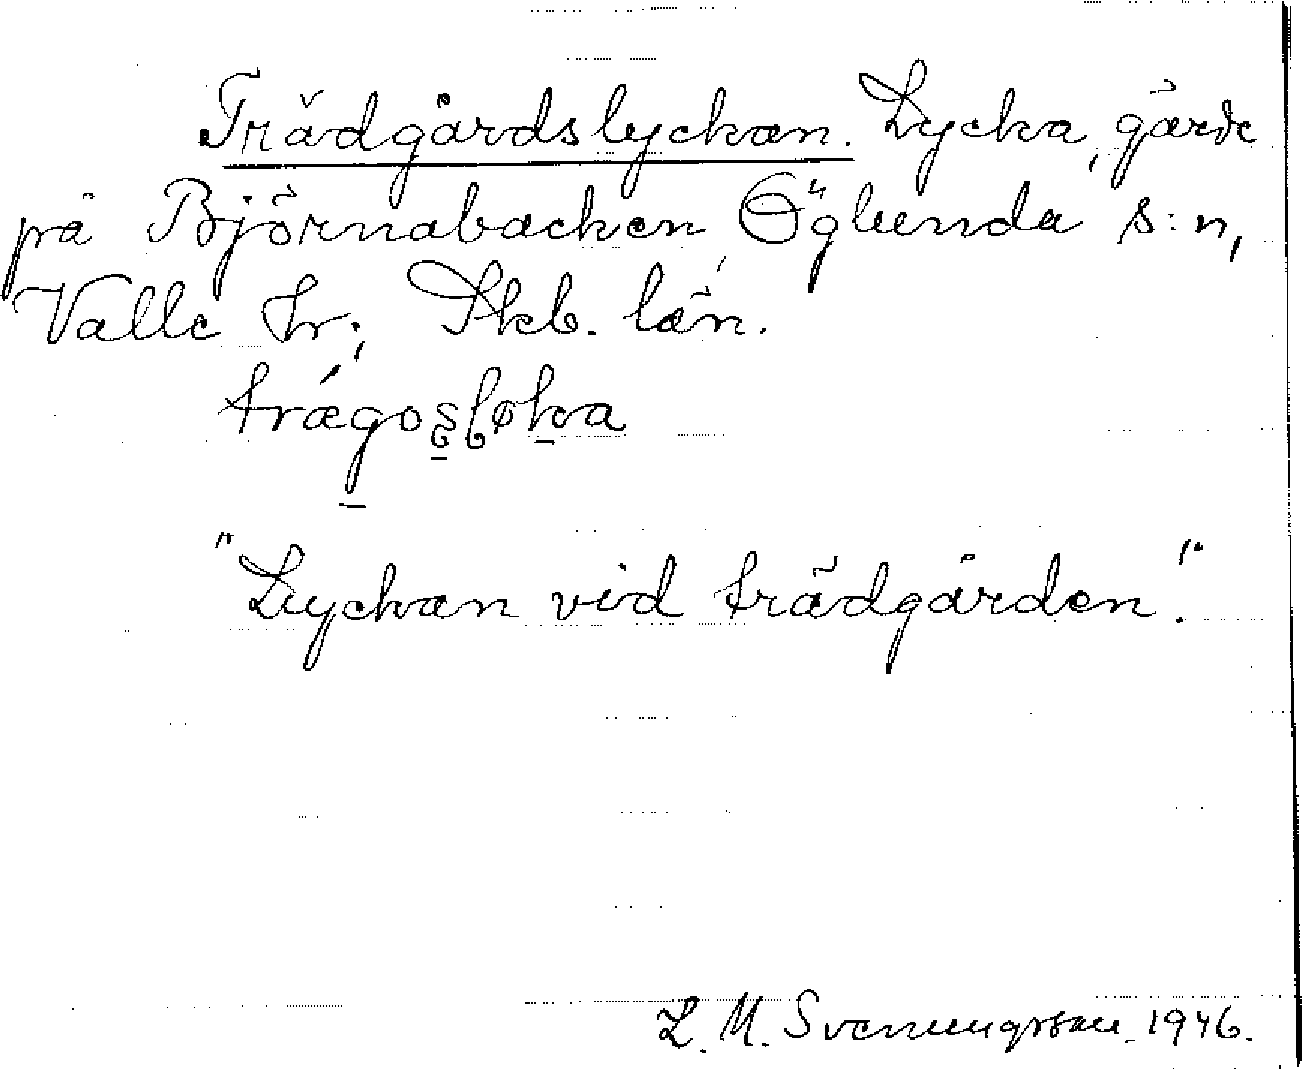 Trädgårdslyckan. Lycka, gärde
på Björnabacken, Öglunda s:n,
Valle hr; Skb. län.
"Lyckan vid trädgården".
L. M. Svenungsson. 1946.